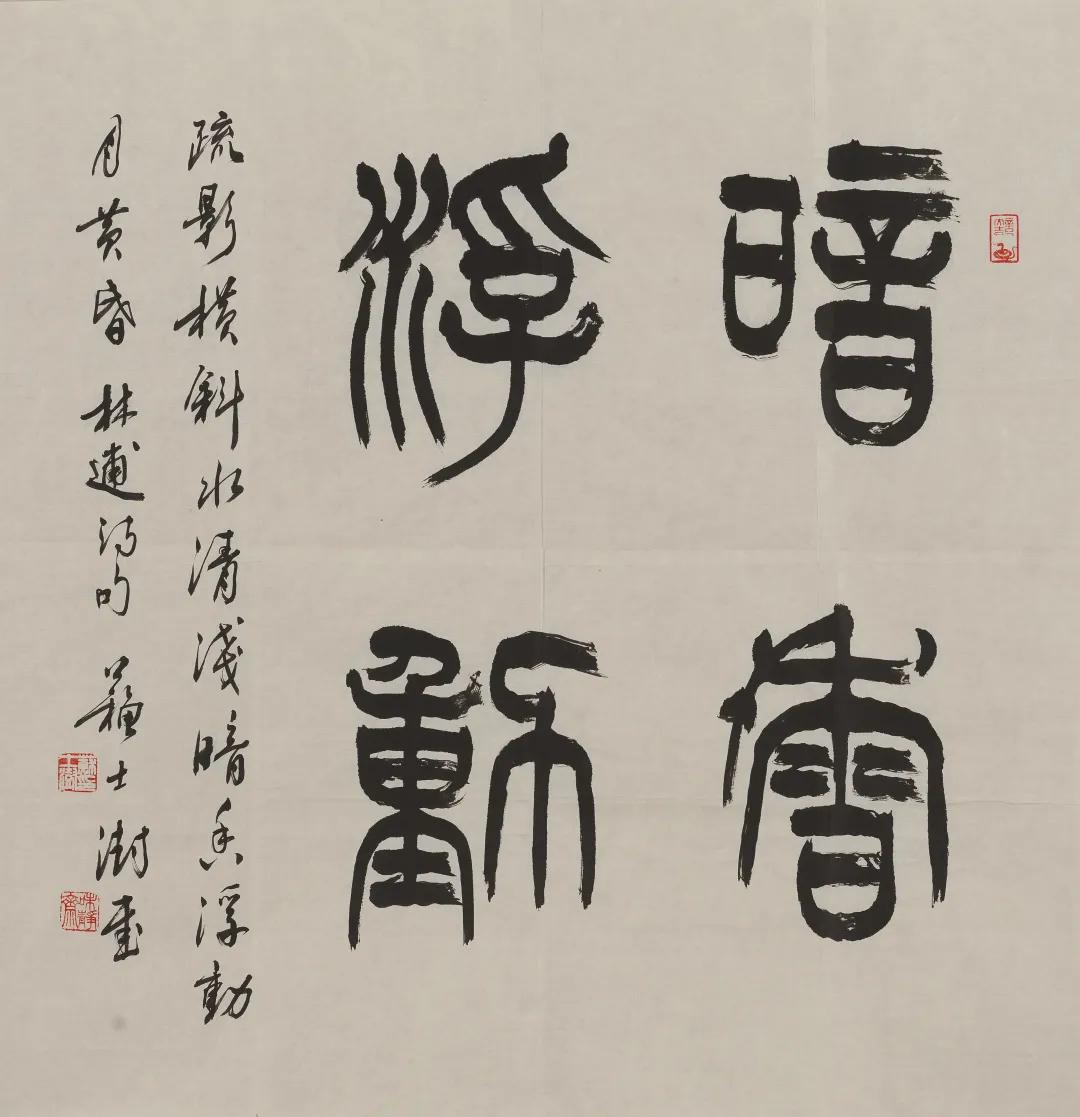 暗香
浮動
疏影橫斜水清淺暗香浮動
月黃昏 林逋詩句 蘇士澍書